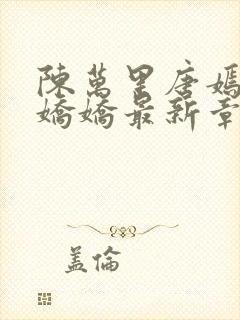 陳萬里唐嫣
嬌嬌最新章
盖倫